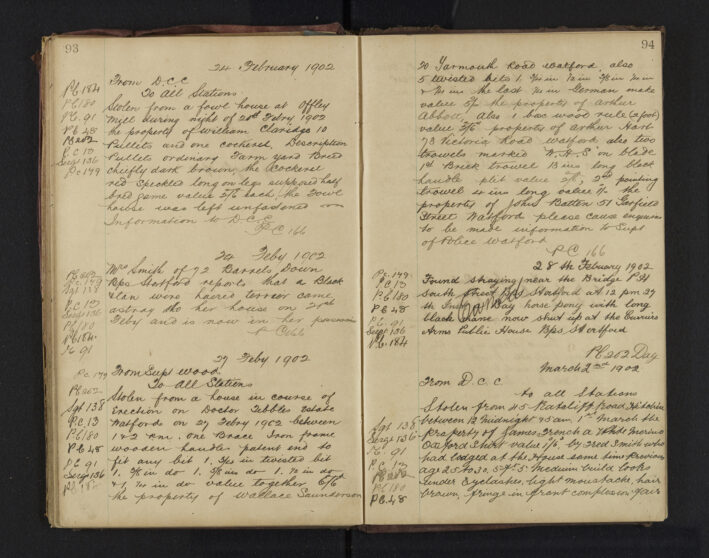 93
24 February 1902
From D.C.C
To All Stations
Stolen from a fowl house at Offley
Mill during night of 20th Febry 1902
the property of William Claridge 10
Pullets and one cockerel, Description
Pullets ordinary Farm yard Breed
chiefly dark brown, the Cockerel
red Speckled long on legs supposed half
bred game value 2/6 each, the Fowl
house was left unfastened
Information to D.C.C
P.C 166
PC 184
PC 180
PC 91
PC 48
PC 202
PC 13
Sergt 136
PC 149
24 Feby 1902
Mrs Smith of 72 Barrels Down
Bps Stortford reports that a Black
& Tan wire haired terrier came
astray to her house on
Feby and is now in her possession
PC 166
PC 202
PC 149
Sgt 138
PC 13
Sergt 136
PC 180
PC 184
PC 91
27 Feby 1902
From Supt Wood
To All Stations
Stolen from a house in course of
erection on Doctor Tibbles Estate
Watford on 27 Febry 1902 between
1 & 2 p.m. One Brace Iron frame
wooden handle patent end to
fit any bit 1, in twisted bit
1, in do 1, in do 1, in do
& 1, in do value together 6/6
the property of Wallace Saunderson
PC 149
PC 202
Sgt 138
PC 13
PC 180
PC 48
PC 91
Sergt 136
PC 184
94
20 Yarmouth Road Watford also
5 twisted bits 1, in in in in
& in the last in German make
value 5/- the property of Arthur
Abbott, Also 1 box wood rule (2 foot)
value property of Arthur Hart
73 Victoria Road Watford also two
trowels marked W.H.S on blade
1st Brick trowel 13 ins long black
handle split value 2/6, 2nd pointing
trowel 4 ins long value 1/- the
property of John Batten 51
Street Watford please cause enquiries
to be made information to Supt
of Police Watford
PC 166
28th February 1902
Found straying near the Bridge P.H
South Street Bps Stortford at 12 pm 27
th Inst Bay horse pony with long
black mane now shut up at the Curriers
Arms Public House Bps Stortford
PC 202 Day
PC 149
Sgt 138
PC 13
PC 180
PC 48
PC 91
Sergt 136
PC 184
March 2nd 1902
From D.C.C
to all Stations
Stolen from 45 Radcliffe Road Hitchin
between 12 Midnight & 5 am, 1st March the
Property of James French a White Merino
Oxford Shirt value by Fred Smith who
had lodged at the House some time Previous
age 25 to 30. 5 ft 5 Medium build looks
under Eyelashes, light moustache, hair
brown, fringe in front complexion fair
Sgt 138
Sergt 136
PC 91
PC 13
PC 202
PC 180
PC 48